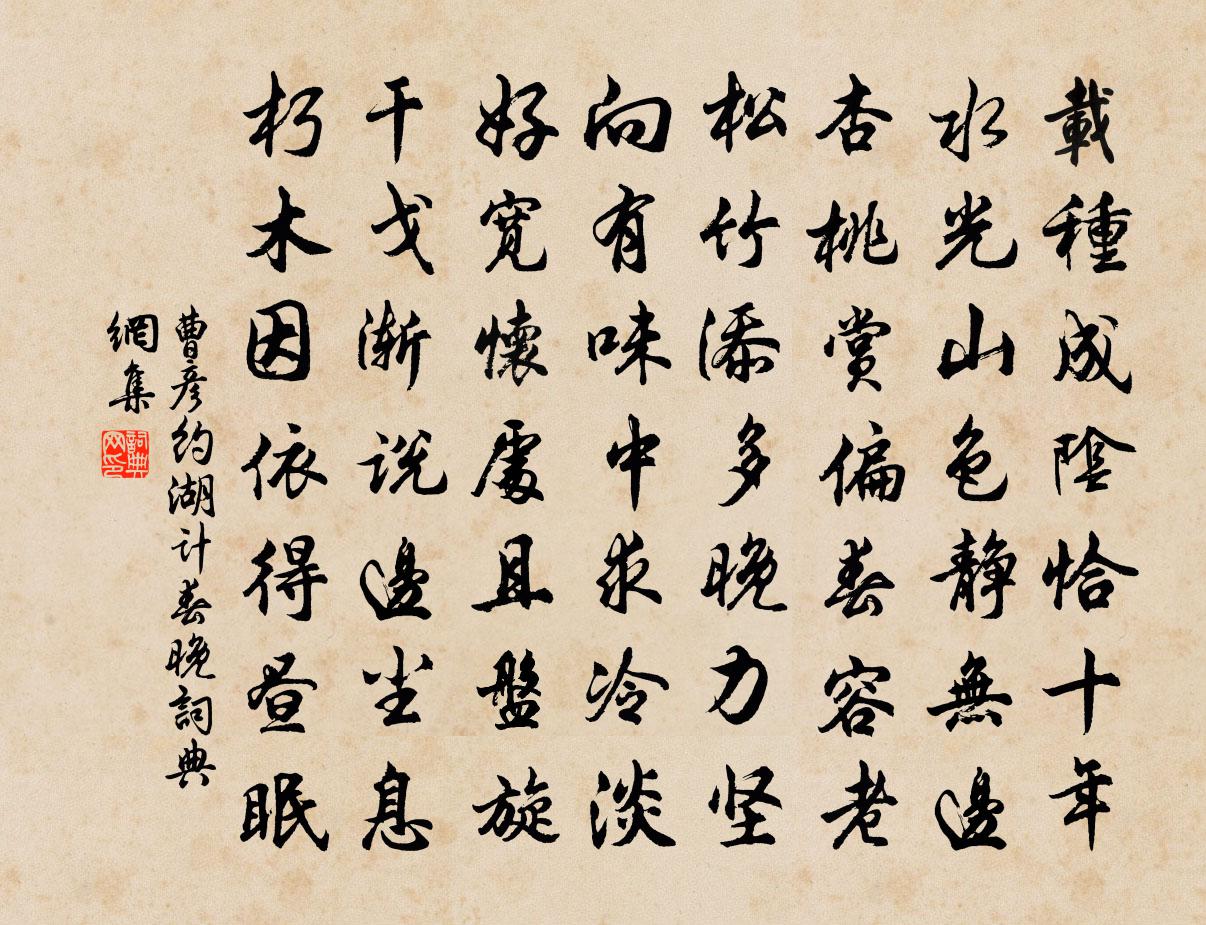 載種成陰恰十年
水光山色静無邊
杏桃賞偏春容老
松竹添多晚力坚
向有味中求冷淡
好寬懷處且盤旋
干戈漸説邊尘息
朽木因依得昼眠
曹彦约湖计春晚詞典
網集
詞典
网印